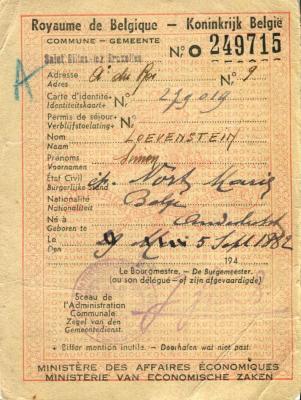 Royaume de Belgique — Koninkrijk België
COMMUNE — GEMEENTE
N.º O 249715
Saint Gilles-lez Bruxelles
A
Adresse
Adres
du Roi N.º 9
Carte d'identité
Identiteitskaart N.º 279019
Permis de séjour
Verblijftoelating N.º
Nom
Naam
LOEVENSTEIN
Prénoms
Voornamen
Simon
État Civil
Burgerlijke Stand
ép. Nort Maria
Nationalité
Nationaliteit
Belge
Né à
Geboren te
Anderlecht
Le
Den
5 Sept 1882
194
Le Bourgmestre, — De Burgemeester,
(ou son délégué — of zijn afgevaardigde)
Sceau de
l'Administration
Communale
Zegel van den
Gemeentedienst.
Biffer mention inutile. — Doorhalen wat niet past.
MINISTÈRE DES AFFAIRES ÉCONOMIQUES
MINISTERIE VAN ECONOMISCHE ZAKEN